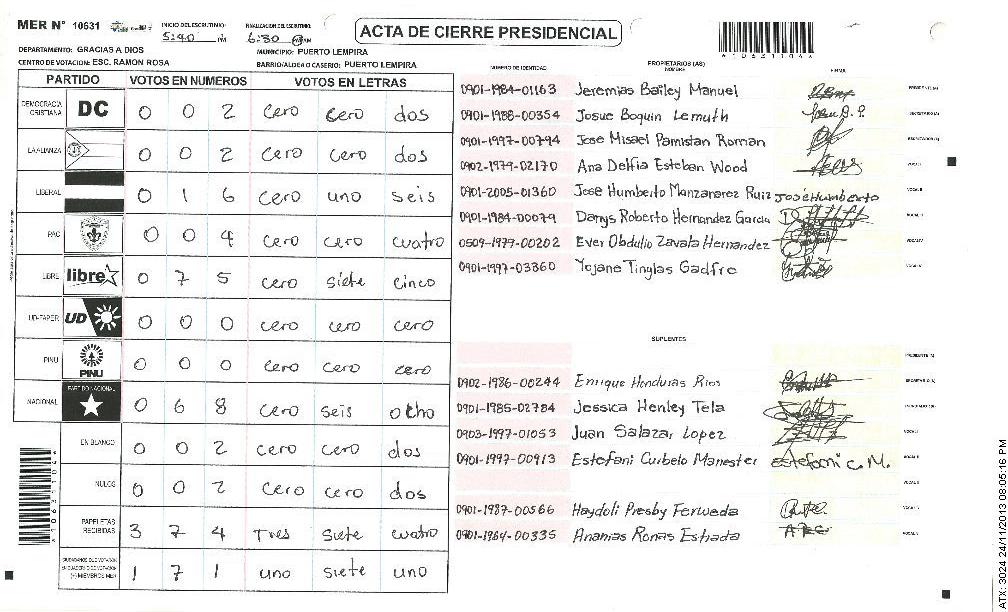 MER Nº 10631
INICIO DEL ESCRUTINIO: 5:40 PM
FINALIZACION DEL ESCRUTINIO: 6:30 PM
ACTA DE CIERRE PRESIDENCIAL
DEPARTAMENTO: GRACIAS A DIOS
MUNICIPIO: PUERTO LEMPIRA
CENTRO DE VOTACION: ESC. RAMON ROSA
BARRIO/ALDEA O CASERIO: PUERTO LEMPIRA
PARTIDO VOTOS EN NUMEROS VOTOS EN LETRAS
DEMOCRACIA CRISTIANA DC 0 0 2 cero cero dos
LA ALIANZA 0 0 2 cero cero dos
LIBERAL 0 1 6 cero uno seis
PAC 0 0 4 cero cero cuatro
LIBRE libre 0 7 5 cero siete cinco
UD-FAPER UD 0 0 0 cero cero cero
PINU PINU 0 0 0 cero cero cero
NACIONAL PARTIDO NACIONAL 0 6 8 cero seis ocho
EN BLANCO 0 0 2 cero cero dos
NULOS 0 0 2 cero cero dos
PAPELETAS RECIBIDAS 3 7 4 Tres siete cuatro
(+) MIEMBROS MER 1 7 1 uno siete uno
A10631104A
NUMERO DE IDENTIDAD PROPIETARIOS (AS) NOMBRE FIRMA
0901-1984-01163 Jeremias Bailey Manuel PRESIDENTE (A)
0901-1988-00354 Josue Boquin Lemuth SECRETARIO (A)
0901-1997-00794 Jose Misael Pamistan Roman
0902-1979-02170 Ana Delfia Esteban Wood VOCAL I
0901-2005-01360 Jose Humberto Manzanarez Ruiz José Humberto VOCAL II
0901-1984-00079 Danys Roberto Hernandez Garcia
0509-1977-00202 Ever Obdulio Zavala Hernandez VOCAL IV
0901-1997-03860 Yojane Tinglas Gadfre VOCAL V
SUPLENTES
PRESIDENTE (A)
0902-1986-00244 Enrique Honduras Rios SECRETARIO (A)
0901-1985-02784 Jessica Henley Tela
0903-1997-01053 Juan Salazar Lopez VOCAL I
0901-1997-00913 Estefani Curbelo Manester Estefani C. M. VOCAL II
0901-1987-00566 Haydoli Presby Ferweda
0901-1984-00335 Ananias Ronas Estrada
ATX: 3024 24/11/2013 08:05:16 PM